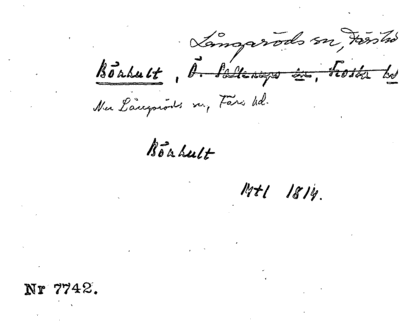 Långaröds sn, Färs hd
Bökhult, Ö. Sallerups sn, Frosta hd
Nu Långaröds sn, Färs hd.
Bökhult
Mtl 1814.
Nr 7742.